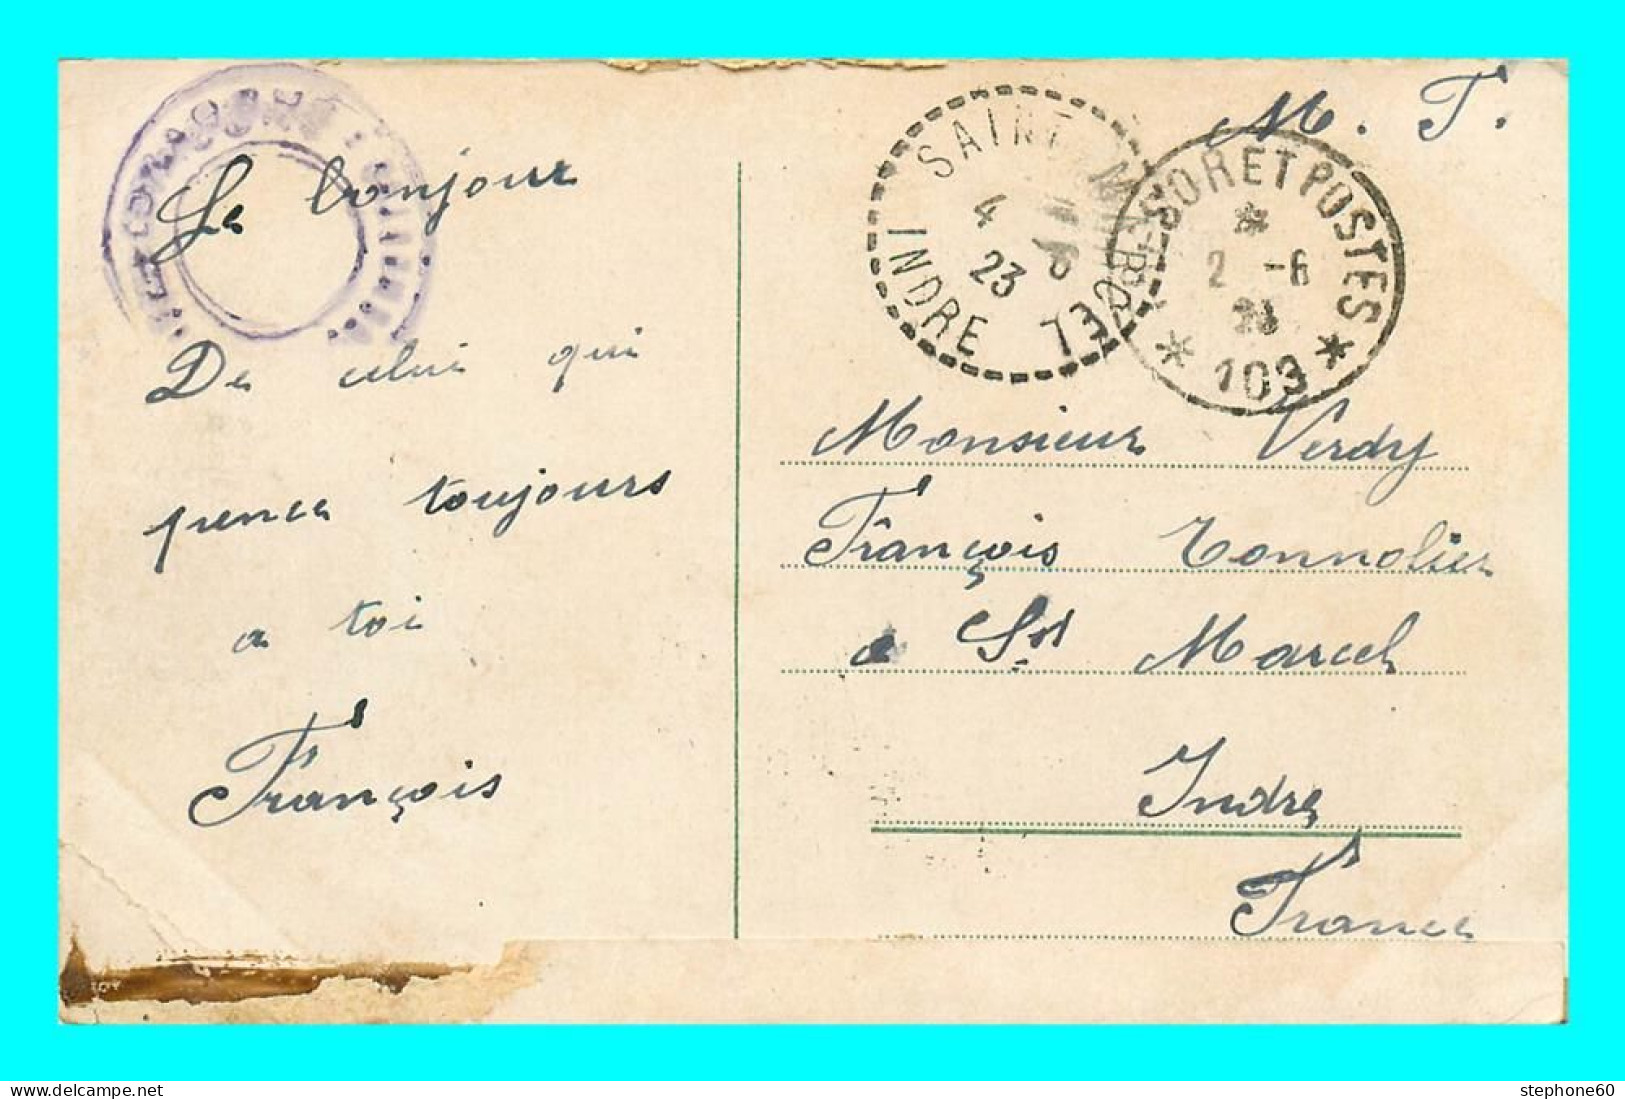 M. F.
Le bonjour
De celui qui
pence toujours
a toi
François
SAINT MARCEL
4 6
23
INDRE
TRESOR ET POSTES
2 -6
23
* 103 *
Monsieur Verdy
François Tonnolier
a St Marcel
Indre
France
stephone60